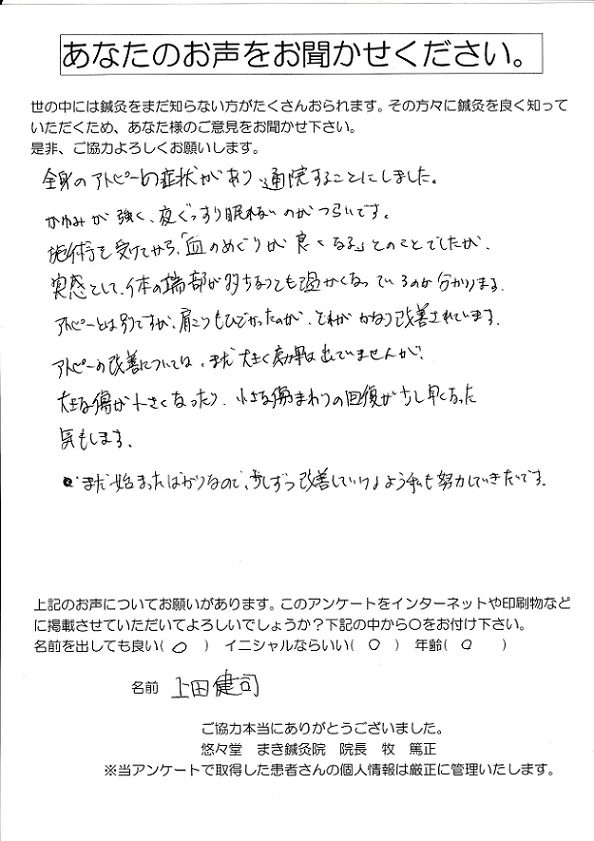 あなたのお声をお聞かせください。
世の中には鍼灸をまだ知らない方がたくさんおられます。その方々に鍼灸を良く知って
いただくため、あなた様のご意見をお聞かせ下さい。
是非、ご協力よろしくお願いします。
全身のアトピーの症状があり通院することにしました。
かゆみが強く、夜ぐっすり眠れないのがつらいです。
施術を受けてから、「血のめぐりが良くなる」とのことでしたが、
実感として、体の端部が多少なっても温かくなっているのが分かります。
アトピーとは別ですが、肩こりもひどかったのが、それがかなり改善されています。
アトピーの改善については、まだ大きく効果は出ていませんが、
大きな傷が小さくなったり、小さな傷まわりの回復が少し早くなった
気もします。
まだ始まったばかりなので、少しずつ改善していけるよう私も努力していきたいです。
上記のお声についてお願いがあります。このアンケートをインターネットや印刷物など
に掲載させていただいてよろしいでしょうか?下記の中から○をお付け下さい。
名前を出しても良い( ○ ) イニシャルならいい( ○ ) 年齢( ○ )
名前 上田健司
ご協力本当にありがとうございました。
悠々堂 まき鍼灸院 院長 牧 篤正
※当アンケートで取得した患者さんの個人情報は厳正に管理いたします。